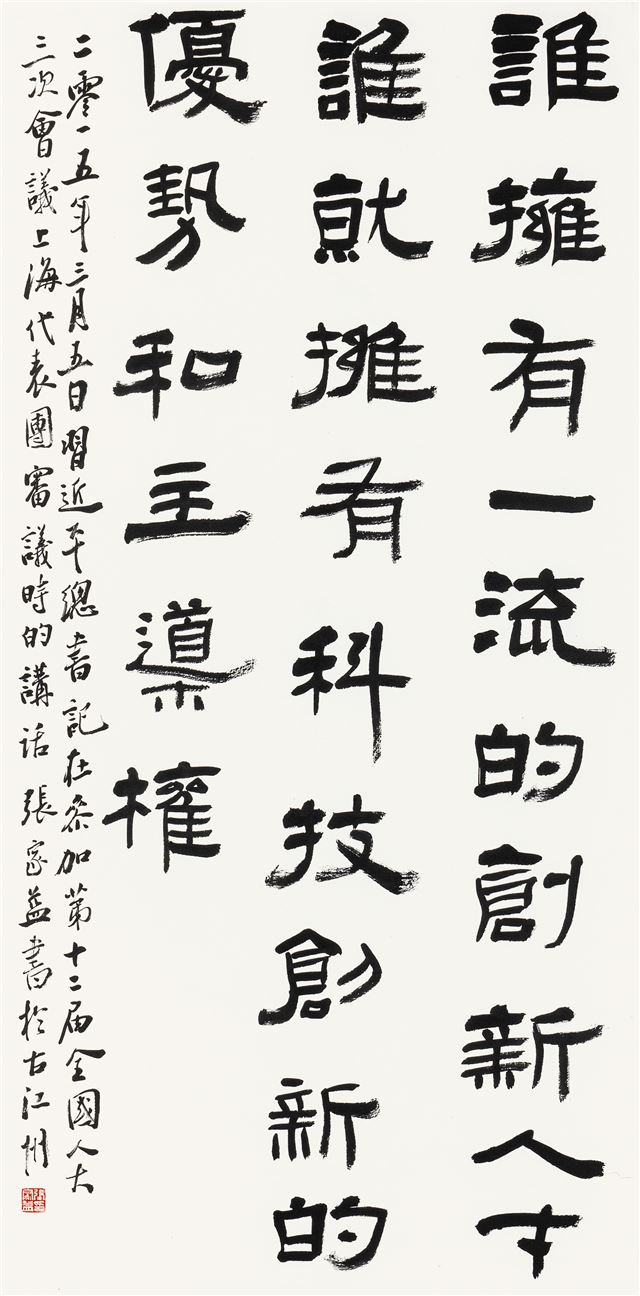 誰擁有一流的創新人才
誰就擁有科技創新的
優勢和主導權
二零一五年三月五日習近平總書記在參加第十二届全國人大
三次會議上海代表團審議時的講話 張家益書於古江州